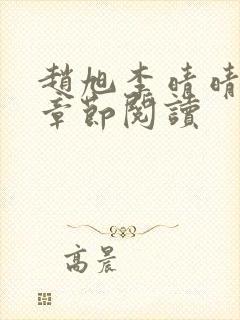 趙旭李晴晴
章節閱讀
高晨